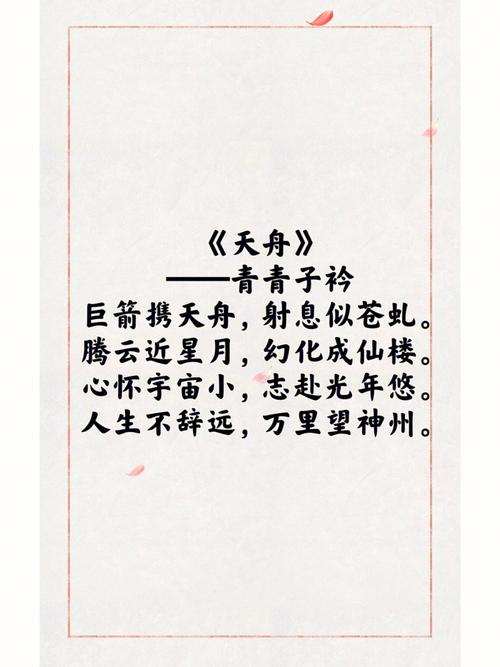 《天舟》
——青青子衿
巨箭携天舟，射息似苍虬。
腾云近星月，幻化成仙楼。
心怀宇宙小，志赴光年悠。
人生不辞远，万里望神州。